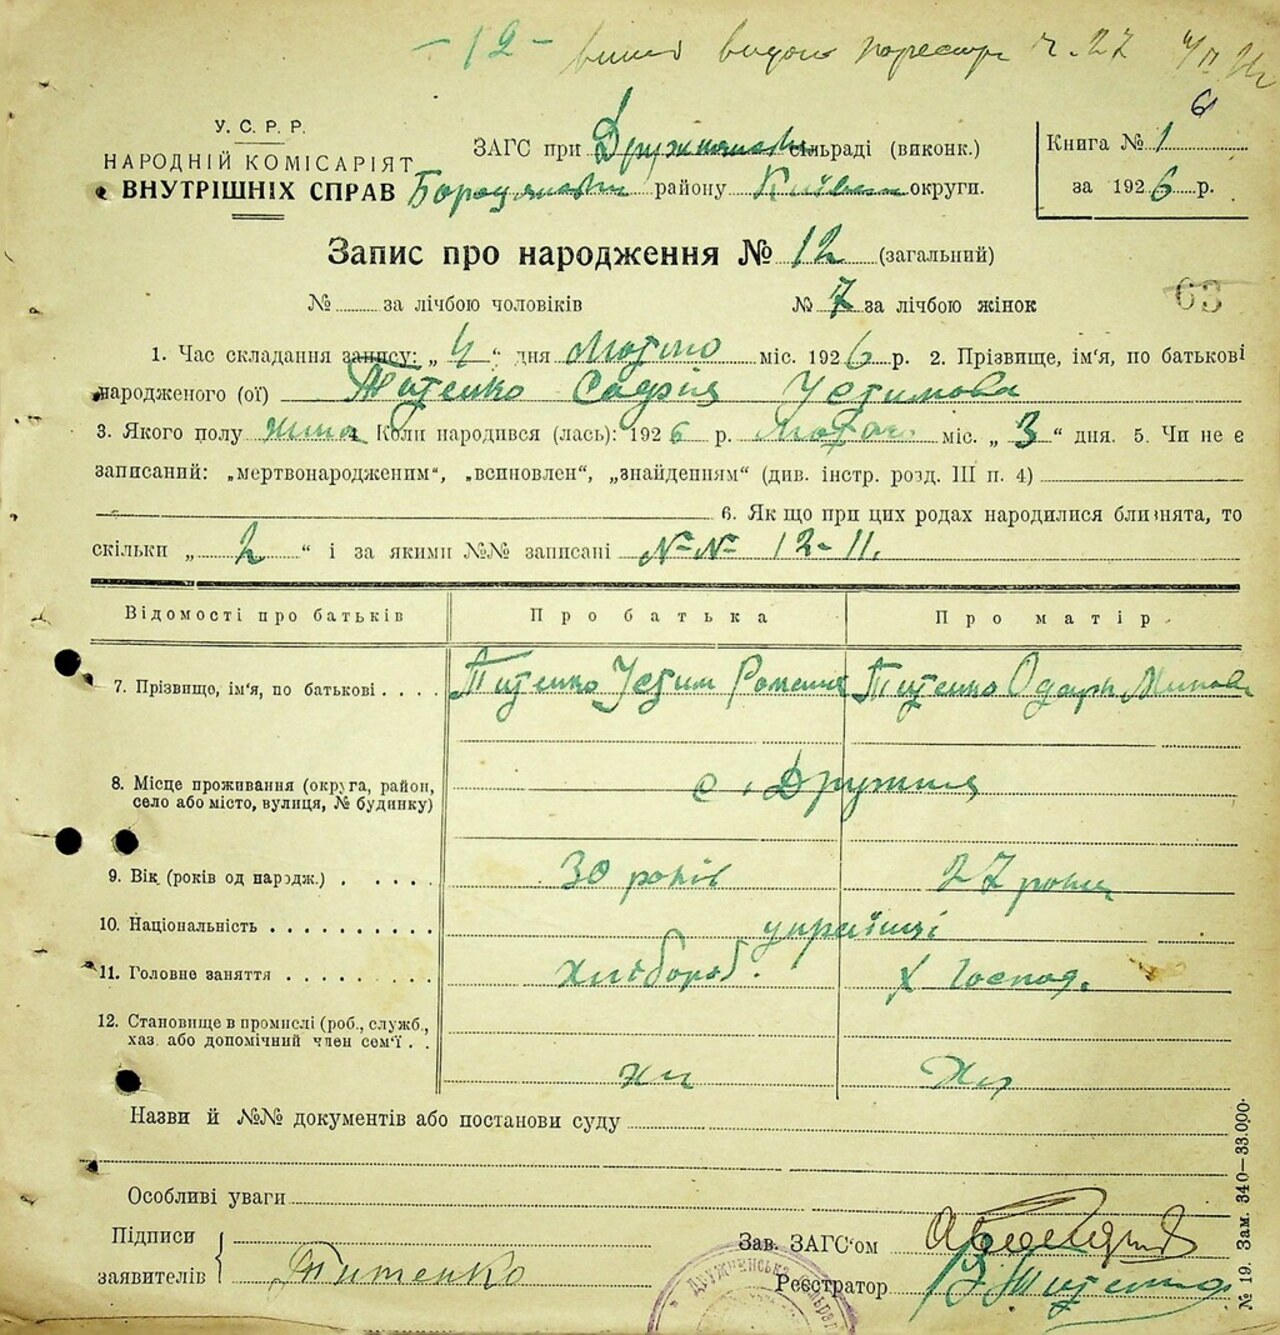 - 12 - виписі видано по реєстр ч. 27
6
У. С. Р. Р.
НАРОДНІЙ КОМІСАРІЯТ
ВНУТРІШНІХ СПРАВ
ЗАГС при Дружнянські сільраді (виконк.)
Бородянськ району Київськ округи.
Книга № 1
за 1926 р.
Запис про народження № 12 (загальний)
№ за лічбою чоловіків № 7 за лічбою жінок
63
1. Час складання запису: „ 4 “ дня Лютого міс. 1926 р. 2. Прізвище, ім'я, по батькові
народженого (ої) Титенко Софія Устимова
3. Якого полу жіноч 4 Коли народився (лась): 1926 р. Лютого міс. „ 3 “ дня. 5. Чи не є
записаний: „мертвонародженим“, „всиновлен“, „знайденням“ (див. інстр. розд. III п. 4)
6. Як що при цих родах народилися близнята, то
скільки „ 2 “ і за якими №№ записані №№ 12-11.
Відомості про батьків Про батька Про матір
7. Прізвищо, ім'я, по батькові . . . . Титенко Устим Титенко Одарка
8. Місце проживання (округа, район,
село або місто, вулиця, № будинку) с. Дружня
9. Вік (років од народж.) . . . . . 30 років 27 років
10. Національність . . . . . . . . . . українці
11. Головне заняття . . . . . . . . . хлібороб. х Господ.
12. Становище в промислі (роб., служб.,
хаз. або допомічний член сем'ї . .
Назви й №№ документів або постанови суду
Особливі уваги
Підписи
заявителів Титенко
Зав. ЗАГС'ом
Реєстратор Титенко
ДРУЖНЕНСЬКА
№ 19. Зам. 340—33.000.